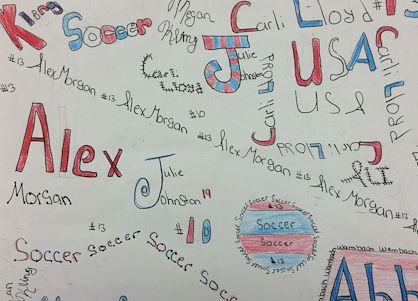 King
Soccer
Megan
Carli Lloyd
#13 Alex Morgan
#13 Alex Morgan #10
Carli
Lloyd
Julie
Johnston
USA
USA
Carli Lloyd
#13
#13 Alex Morgan
#13 Alex Morgan #13
Carli Lloyd
Alex
Morgan
Julie
Johnston 19
#10
Soccer soccer Soccer Soccer
#13
Soccer
Soccer
#13
Soccer Soccer Soccer Soccer
Wambach Wambach
Abb